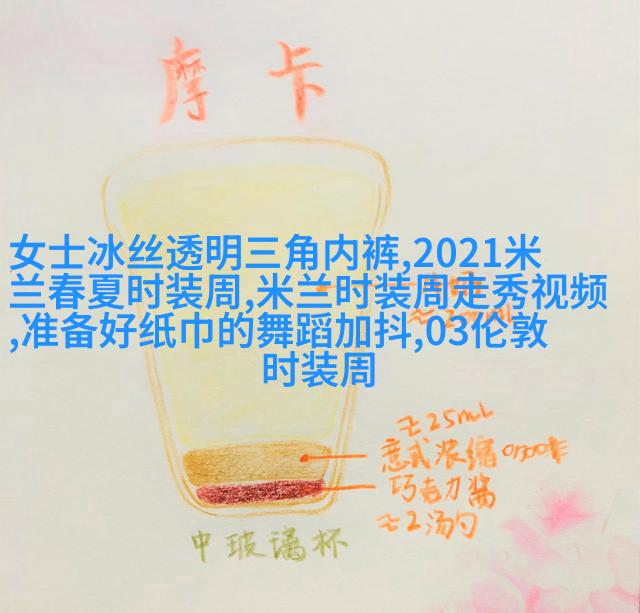 摩卡
女士冰丝透明三角内裤,2021米
兰春夏时装周,米兰时装周走秀视频
,准备好纸巾的舞蹈加抖,03伦敦
时装周
≈25mL
意式浓缩
巧克力酱
≈2汤勺
中玻璃杯